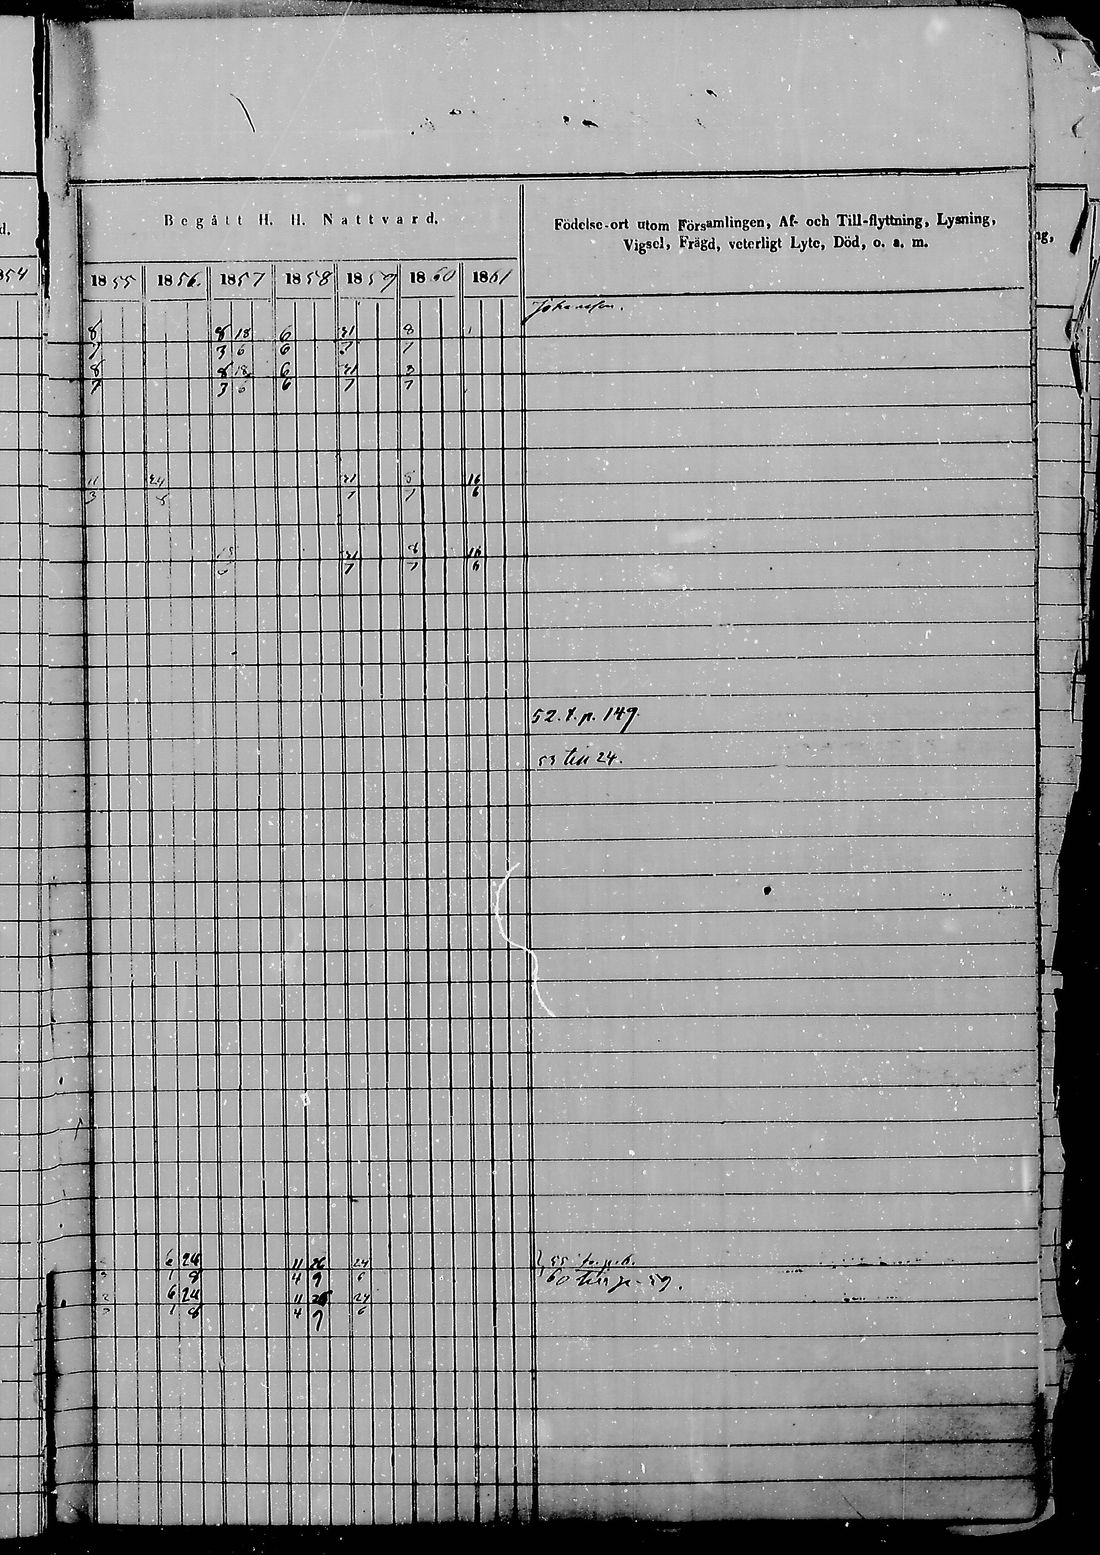 d.
Begått H. H. Nattvard.
Födelse-ort utom Församlingen, Af- och Till-flyttning, Lysning,
Vigsel, Frägd, veterligt Lyte, Död, o. a. m.
ng,
854 1855 1856. 1857 1858 1859 1860 1861
8 8 18 6 21 8
7 3 6 6 7 7
8 8 18 6 21 8
7 3 6 6 7 7
11 24 21 8 16
3 8 7 7 6
18 21 8 16
6 7 7 6
52. t. p. 149.
53 till 24.
6 24 11 26 24 55
1 8 4 9 6 60 till p. 59.
6 24 11 26 24
1 8 4 9 6